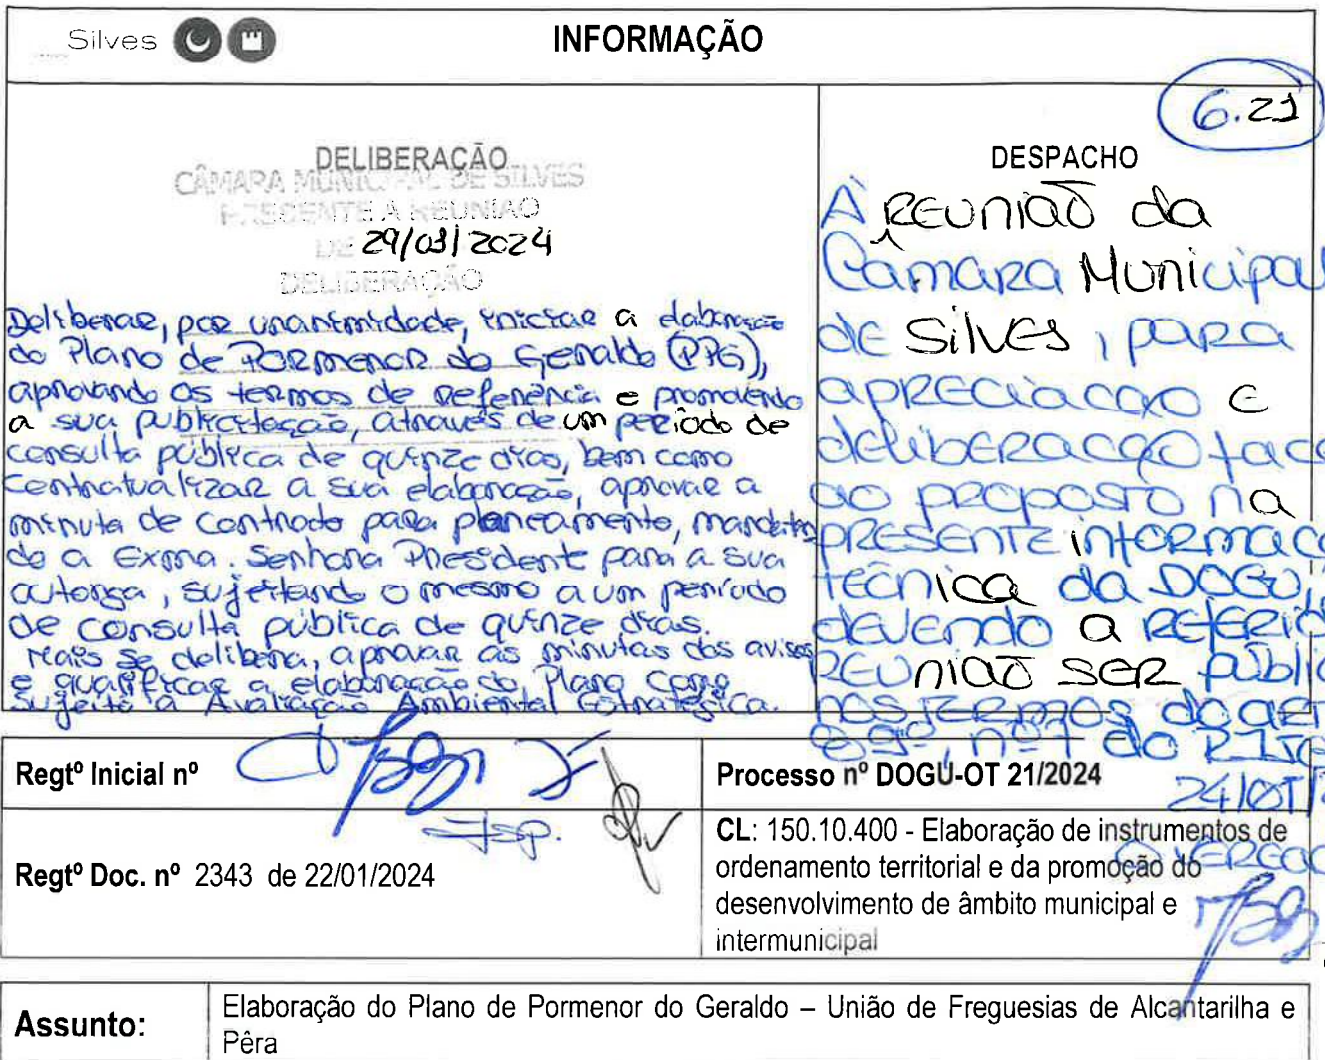 Silves
INFORMAÇÃO
6.21
DELIBERAÇÃO
CÂMARA MUNICIPAL DE SILVES
PRESENTE A REUNIÃO
DE 29/01/2024
DELIBERAÇÃO
Deliberar, por unanimidade, iniciar a elaboração
do Plano de Pormenor do Geraldo (PPG),
aprovando os termos de referência e promovendo
a sua publicitação, através de um período de
consulta pública de quinze dias, bem como
contratualizar a sua elaboração, aprovar a
minuta de contrato para planeamento, mandatan
do a Exma. Senhora Presidente para a sua
outorga, sujeitando o mesmo a um período
de consulta pública de quinze dias.
Mais se delibera, aprovar as minutas dos avisos
e qualificar a elaboração do Plano como
sujeito a Avaliação Ambiental Estratégica.
DESPACHO
À REUNIÃO da
Câmara Municipal
de Silves, para
apreciação e
deliberação face
ao proposto na
presente informaçã
técnica da DOGU,
devendo a referid
REUNIÃO SER públic
nos termos do art
89º, nº 1 do RJIG
24/01/
O VEREADO
Regtº Inicial nº
Processo nº DOGU-OT 21/2024
Regtº Doc. nº 2343 de 22/01/2024
CL: 150.10.400 - Elaboração de instrumentos de
ordenamento territorial e da promoção do
desenvolvimento de âmbito municipal e
intermunicipal
Assunto:
Elaboração do Plano de Pormenor do Geraldo – União de Freguesias de Alcantarilha e
Pêra